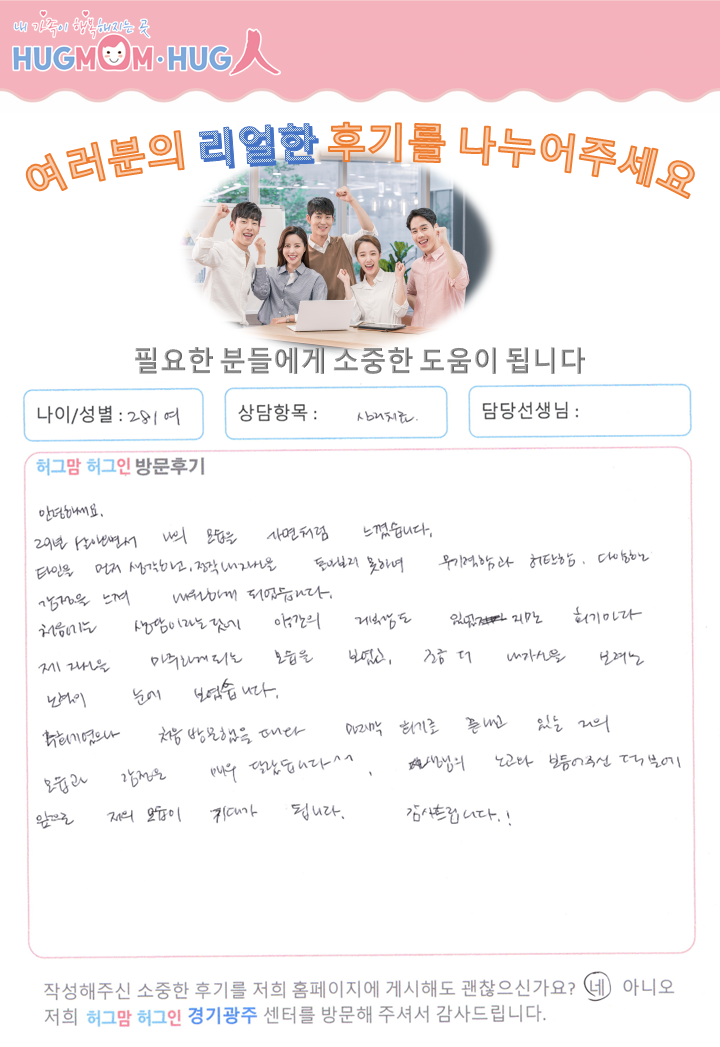 내 가족이 행복해지는 곳
HUGMOM·HUG人
여러분의 리얼한 후기를 나누어주세요
필요한 분들에게 소중한 도움이 됩니다
나이/성별 : 28/여
상담항목 : 심리치료.
담당선생님 :
허그맘 허그인 방문후기
안녕하세요.
살아오면서 나의 모습을 가면처럼 느꼈습니다.
타인을 먼저 생각하고, 정작 내 자신을 돌아보지 못하며 무기력함과 허탈함. 다양한
감정을 느껴 내원하게 되었습니다.
처음에는 상담이라는 것에 약간의 거부감도 있었지만 회기마다
제 자신을 마주하게 되는 모습을 보였고, 조금 더 내 자신을 보려는
노력이 눈에 보였습니다.
처음 방문했을 때와 마지막 회기로 끝내고 있는 저의
모습과 감정은 매우 달랐습니다^^. 선생님의 노고와 보듬어주신 덕분에
앞으로 저의 모습이 기대가 됩니다. 감사드립니다.!
작성해주신 소중한 후기를 저희 홈페이지에 게시해도 괜찮으신가요? 네 아니오
저희 허그맘 허그인 경기광주 센터를 방문해 주셔서 감사드립니다.